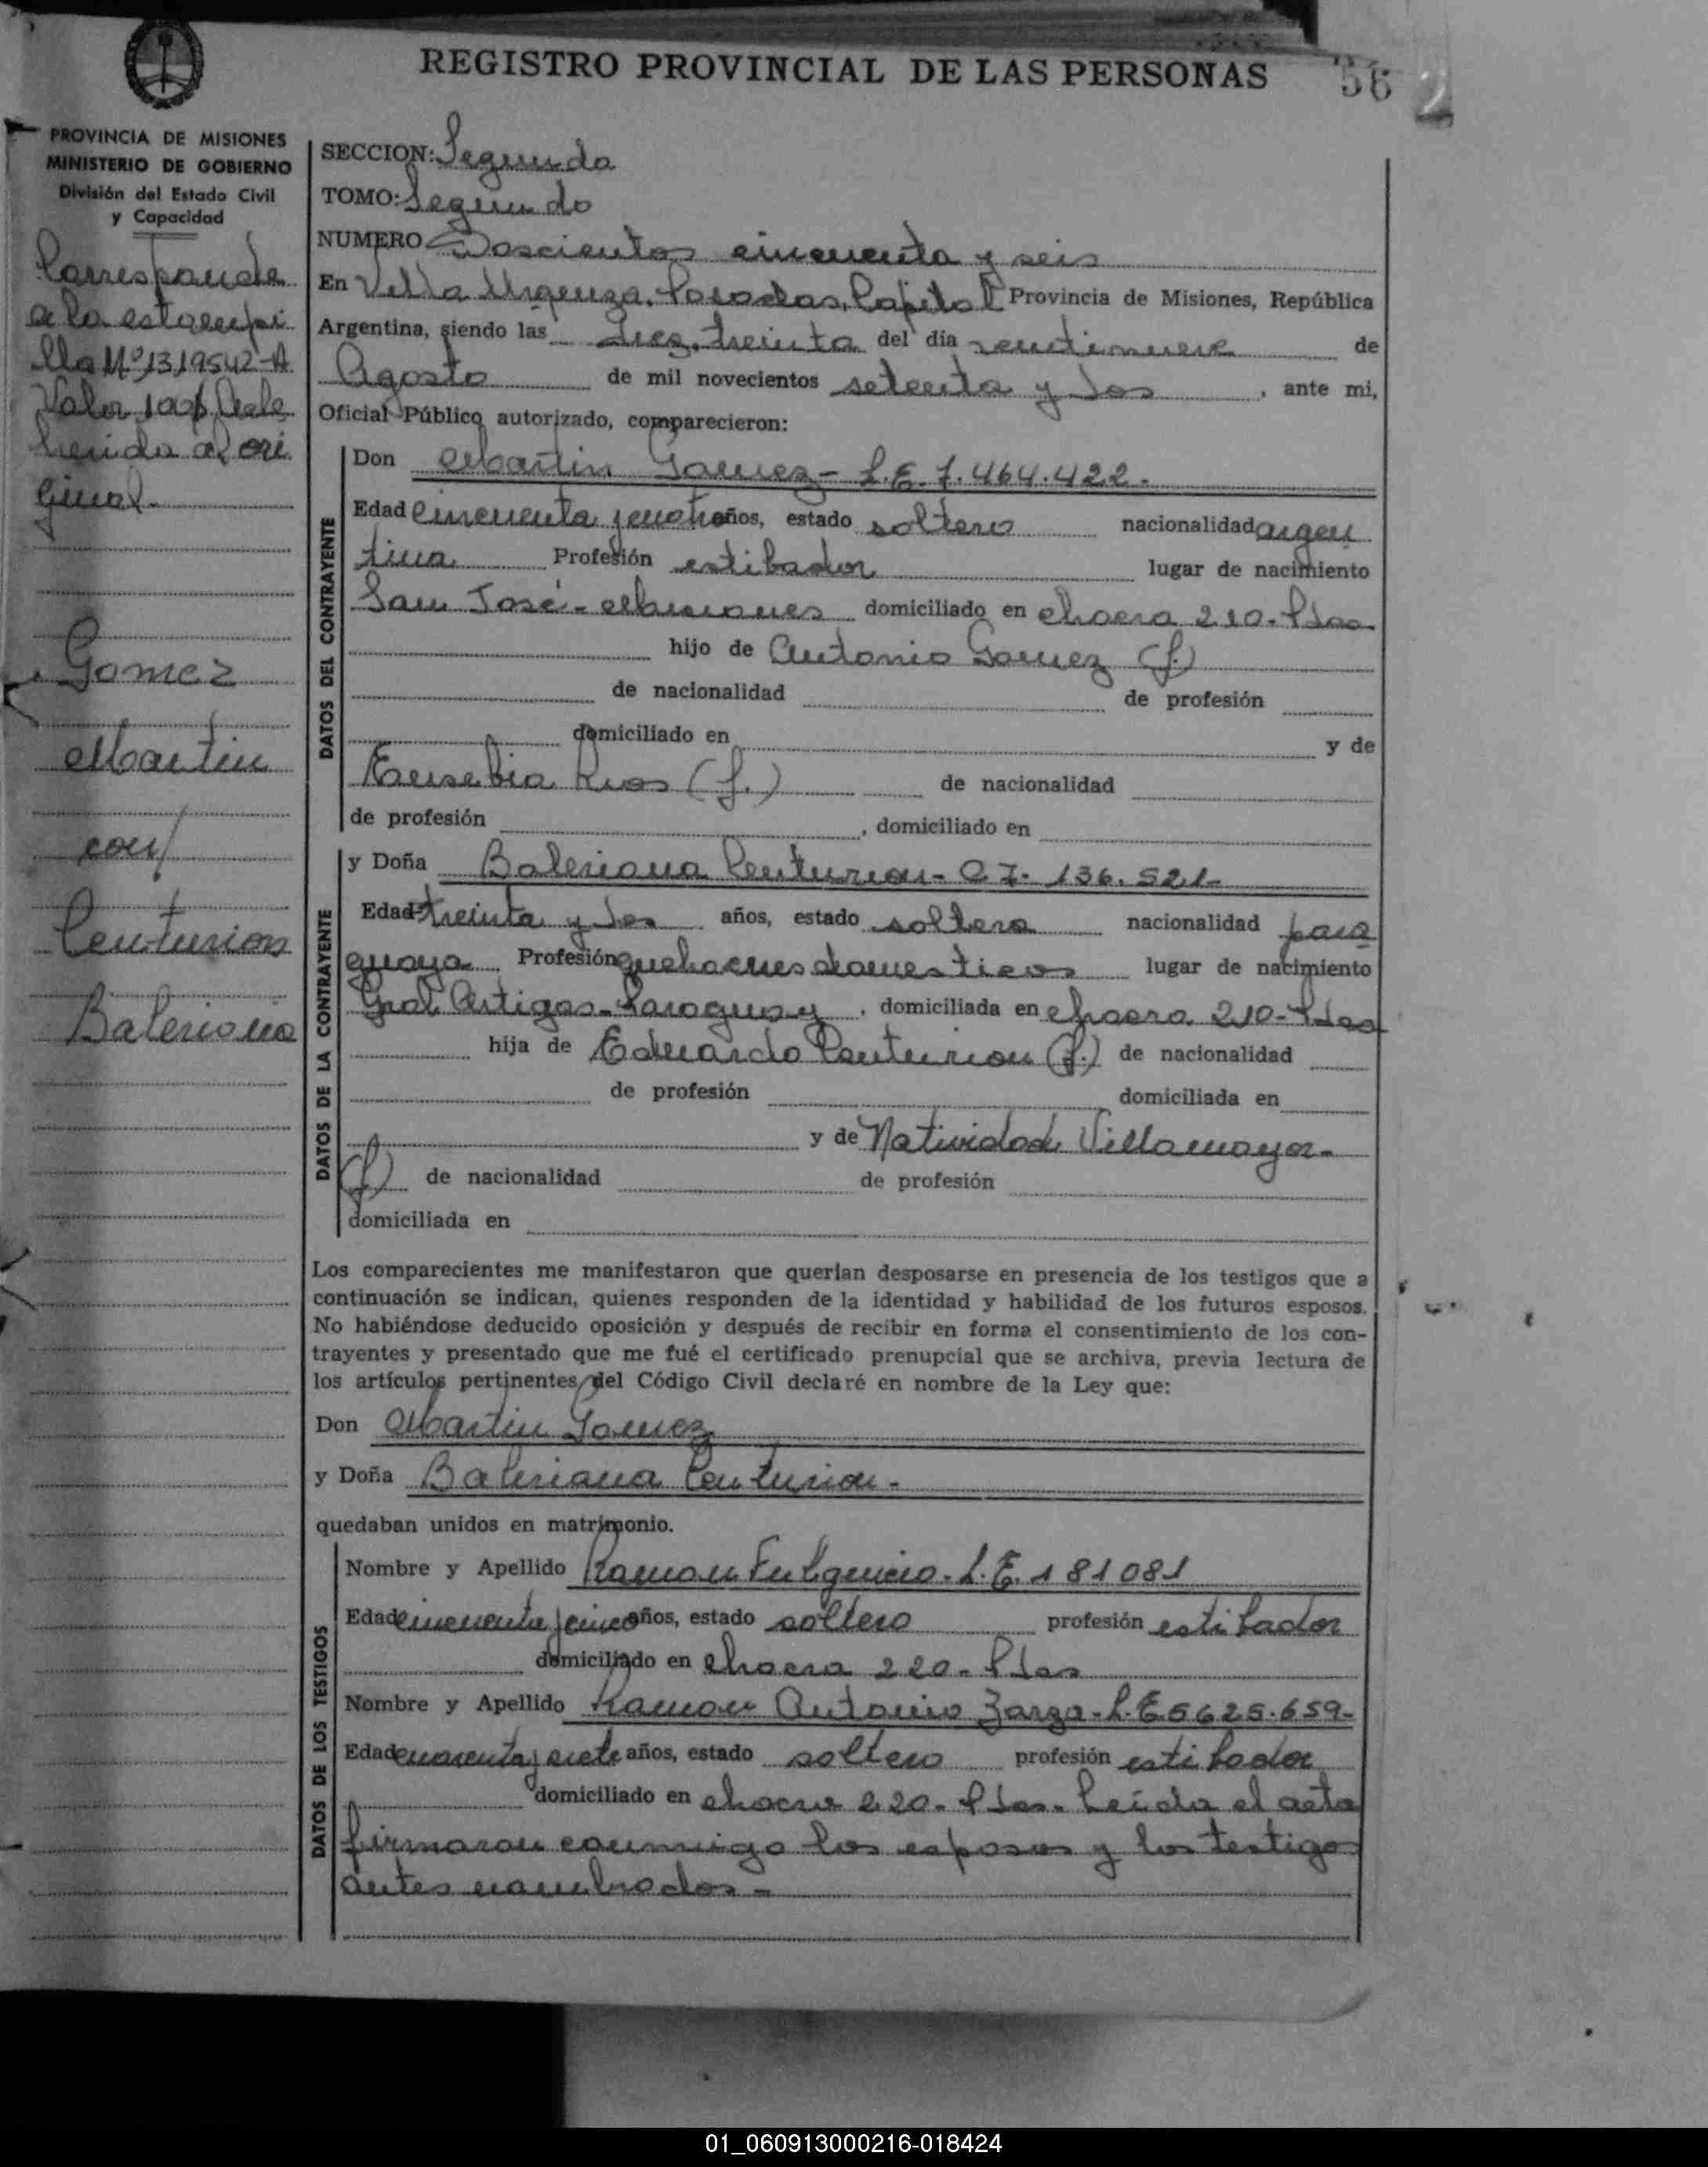 REGISTRO PROVINCIAL DE LAS PERSONAS
56
2
PROVINCIA DE MISIONES
MINISTERIO DE GOBIERNO
División del Estado Civil
y Capacidad
Corresponde
a la estampi
lla Nº 1319542-A
Valor
herida al ori
ginal.
Gomez
Martin
con/
Centurion
Baleriana
SECCION: Segunda
TOMO: Segundo
NUMERO Doscientos cincuenta y seis
En Villa Urquiza, Posadas, Capital Provincia de Misiones, República
Argentina, siendo las diez, treinta del día veintinueve de
Agosto de mil novecientos setenta y dos, ante mi,
Oficial Público autorizado, comparecieron:
DATOS DEL CONTRAYENTE
Don Martin Gomez - L.E. 7.464.422.
Edad cincuenta y ocho años, estado soltero nacionalidad argen
tina Profesión estibador lugar de nacimiento
San José - Misiones domiciliado en chacra 210. Pdas
hijo de Antonio Gomez (f.)
de nacionalidad de profesión
domiciliado en y de
Eusebia Rios (f.) de nacionalidad
de profesión , domiciliado en
DATOS DE LA CONTRAYENTE
y Doña Baleriana Centurion - C.I. 136.521-
Edad treinta y dos años, estado soltera nacionalidad para
guaya Profesión quehaceres domesticos lugar de nacimiento
Gral. Artigas - Paraguay, domiciliada en chacra 210 - Pdas
hija de Eduardo Centurion (f.) de nacionalidad
de profesión domiciliada en
y de Natividad Villamayor -
(f) de nacionalidad de profesión
domiciliada en
Los comparecientes me manifestaron que querían desposarse en presencia de los testigos que a
continuación se indican, quienes responden de la identidad y habilidad de los futuros esposos.
No habiéndose deducido oposición y después de recibir en forma el consentimiento de los con-
trayentes y presentado que me fué el certificado prenupcial que se archiva, previa lectura de
los artículos pertinentes del Código Civil declaré en nombre de la Ley que:
Don Martin Gomez
y Doña Baleriana Centurion -
quedaban unidos en matrimonio.
DATOS DE LOS TESTIGOS
Nombre y Apellido Ramon Fulgencio - L.E. 181081
Edad cincuenta y cinco años, estado soltero profesión estibador
domiciliado en chacra 220 - Pdas
Nombre y Apellido Ramon Antonio Zarza - L.E 5625.659-
Edad cuarenta y siete años, estado soltero profesión estibador
domiciliado en chacra 220 - Pdas - Leida el acta
firmaron conmigo los esposos y los testigos
antes nombrados -
01_060913000216-018424